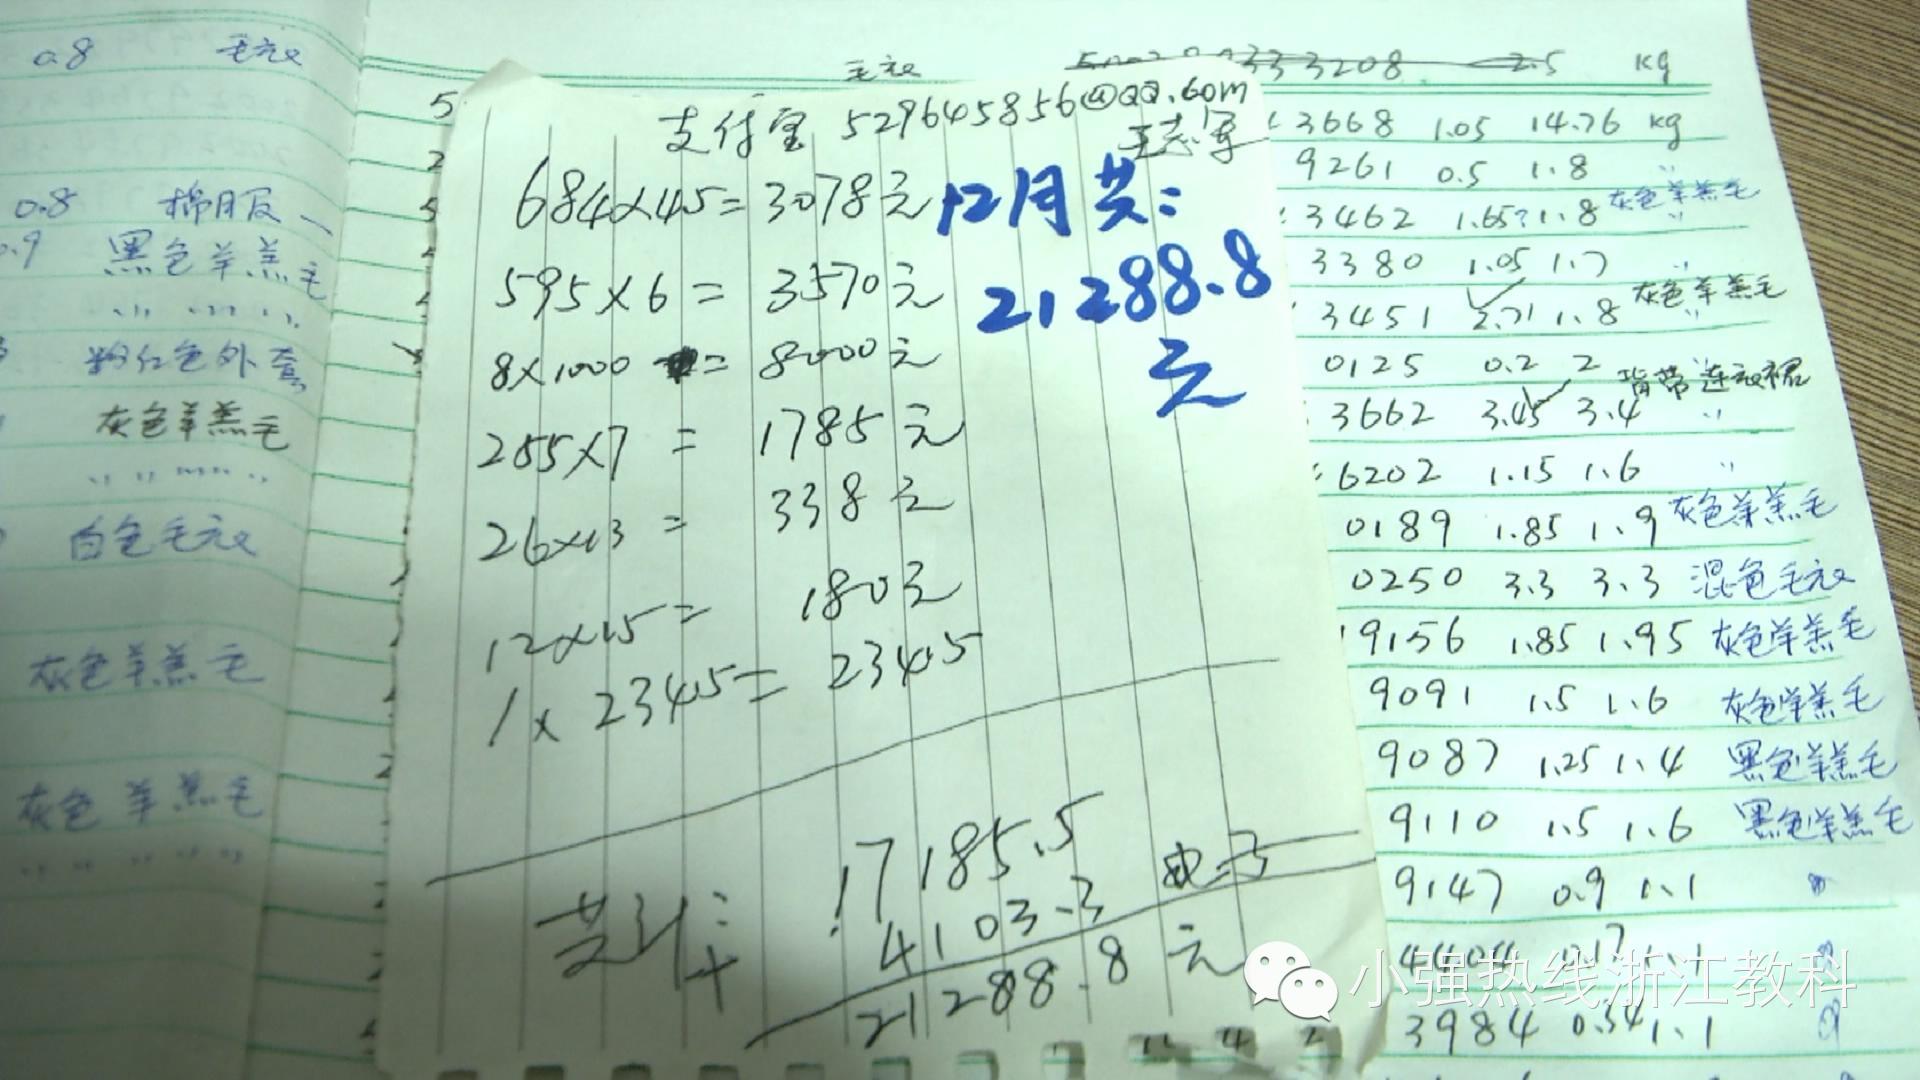 0.8 毛衣
0.8 棉服
0.9 黑色羊羔毛
粉红色外套
灰色羊羔毛
白色毛衣
灰色羊羔毛
灰色羊羔毛
支付宝 529645856@QQ.com
王志军
684×4.5=3078元
595×6=3570元
8×1000=8000元
255×7=1785元
26×13=338元
12×15=180元
1×234.5=234.5
共计: 17185.5
+ 4103.3
21288.8元
12月共:
21288.8
元
毛衣 3208 2.5 kg
3668 1.05 14.76 kg
9261 0.5 1.8 "
3462 1.65?1.8 灰色羊羔毛
3380 1.05 1.7 "
3451 2.71 1.8 灰色羊羔毛
0125 0.2 2 背带连衣裙
3662 3.45 3.4 "
6202 1.15 1.6 "
0189 1.85 1.9 灰色羊羔毛
0250 3.3 3.3 混色毛衣
19156 1.85 1.95 灰色羊羔毛
9091 1.5 1.6 灰色羊羔毛
9087 1.25 1.4 黑色羊羔毛
9110 1.5 1.6 黑色羊羔毛
9147 0.9 1.1
4404 0.17 1.1
3984 0.34 1.1
小强热线浙江教科